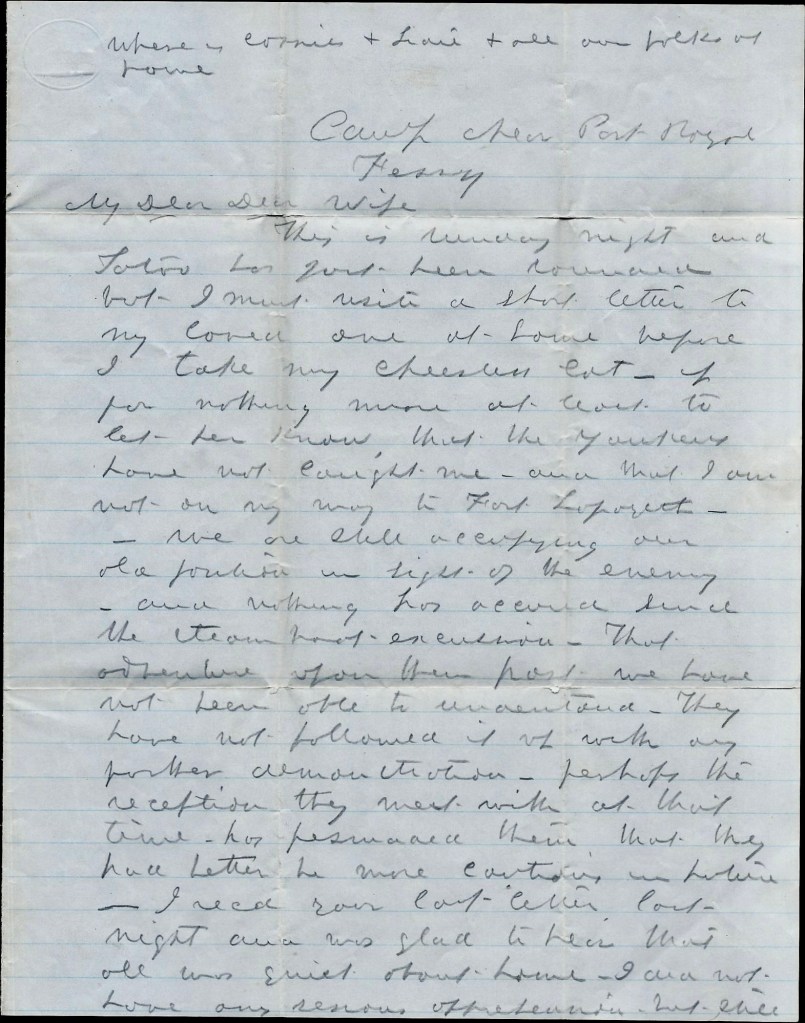 where is Cosnie & Lizzie & all our folks at
home
Camp Near Port Royal
Ferry
My Dear Dear Wife
This is sunday night and
Tatoo has just been sounded
but I must write a short letter to
my loved one at home before
I take my cheerless cot - if
for nothing more at least to
let her know, that the Yankees
have not caught me - and that I am
not on my way to Fort Lafayette -
- we are still occupying our
old position in sight of the enemy
- and nothing has occured since
the steam boat excursion - That
adventure upon their part we have
not been able to understand - They
have not followed it up with any
further demonstration - perhaps the
reception they meet with at that
time - has persuaded them that they
had better be more cautious in future
- I recd your last letter last
night and was glad to hear that
all was quiet about home - I did not
have any serious apprehension but still